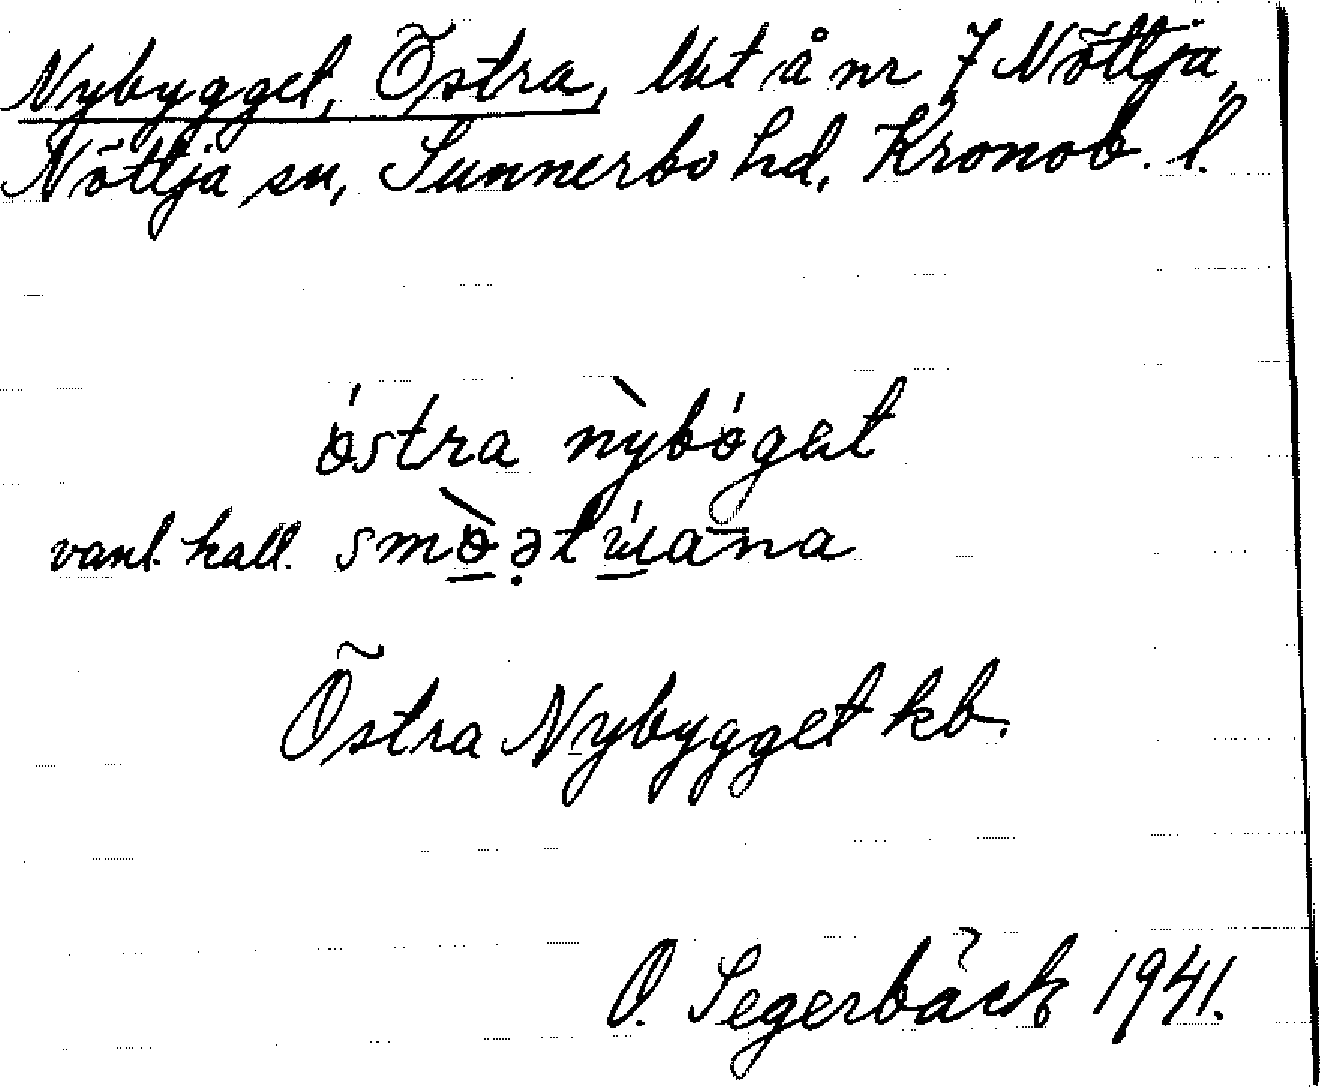 Nybygget, Östra, Uut å nr 7 Nöttja,
Nöttja sn, Sunnerbo hd, Kronob. l.
ǿstra nỳbǿgat
vanl. kall.
Östra Nybygget kb.
O. Segerbäck 1941.